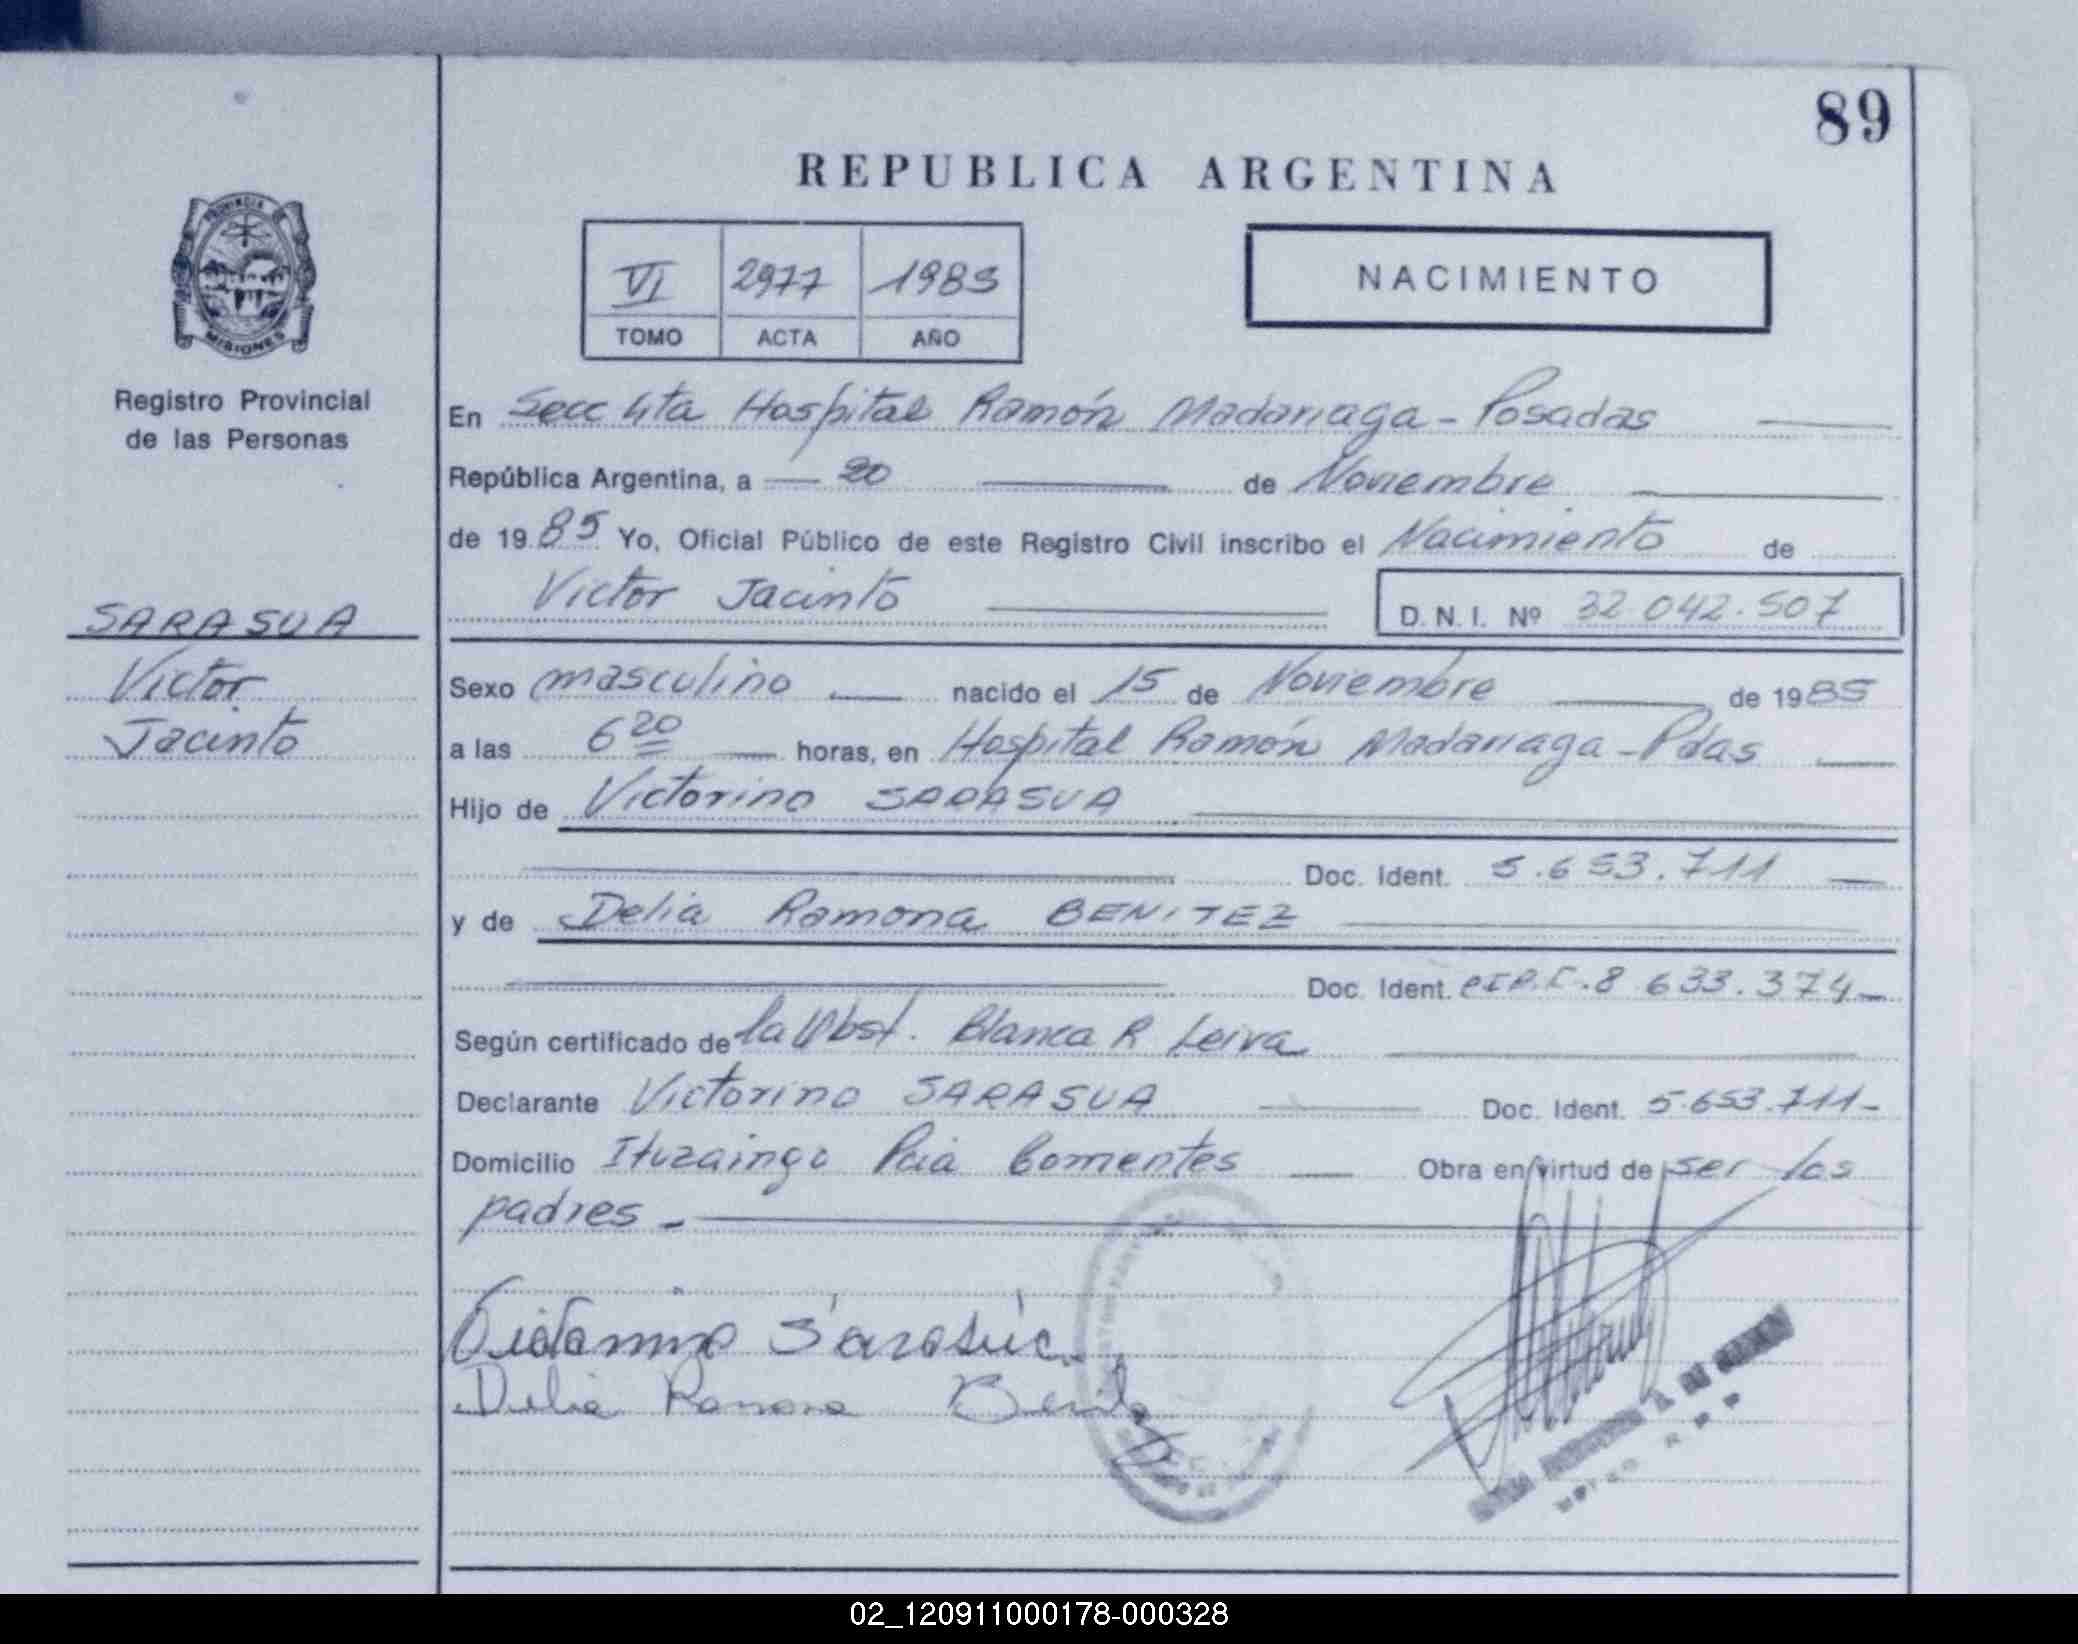 89
REPUBLICA ARGENTINA
PROVINCIA DE
MISIONES
Registro Provincial
de las Personas
VI 2977 1985
TOMO ACTA AÑO
NACIMIENTO
SARASUA
Victor
Jacinto
En Secc 4ta Hospital Ramón Madariaga - Posadas
República Argentina, a 20 de Noviembre
de 1985 Yo, Oficial Público de este Registro Civil inscribo el Nacimiento de
Victor Jacinto D. N. I. Nº 32.042.507
Sexo masculino nacido el 15 de Noviembre de 1985
a las 6 20 horas, en Hospital Ramón Madariaga - Pdas
Hijo de Victorino SARASUA
Doc. Ident. 5.653.711
y de Delia Ramona BENITEZ
Doc. Ident. 8.633.374
Según certificado de la Obst. Blanca R Leiva
Declarante Victorino SARASUA Doc. Ident. 5.653.711
Domicilio Ituzaingo Pcia Corrientes Obra en virtud de ser los
padres.
Victorino Sarasúa
Delia Ramona Benitez
02_120911000178-000328